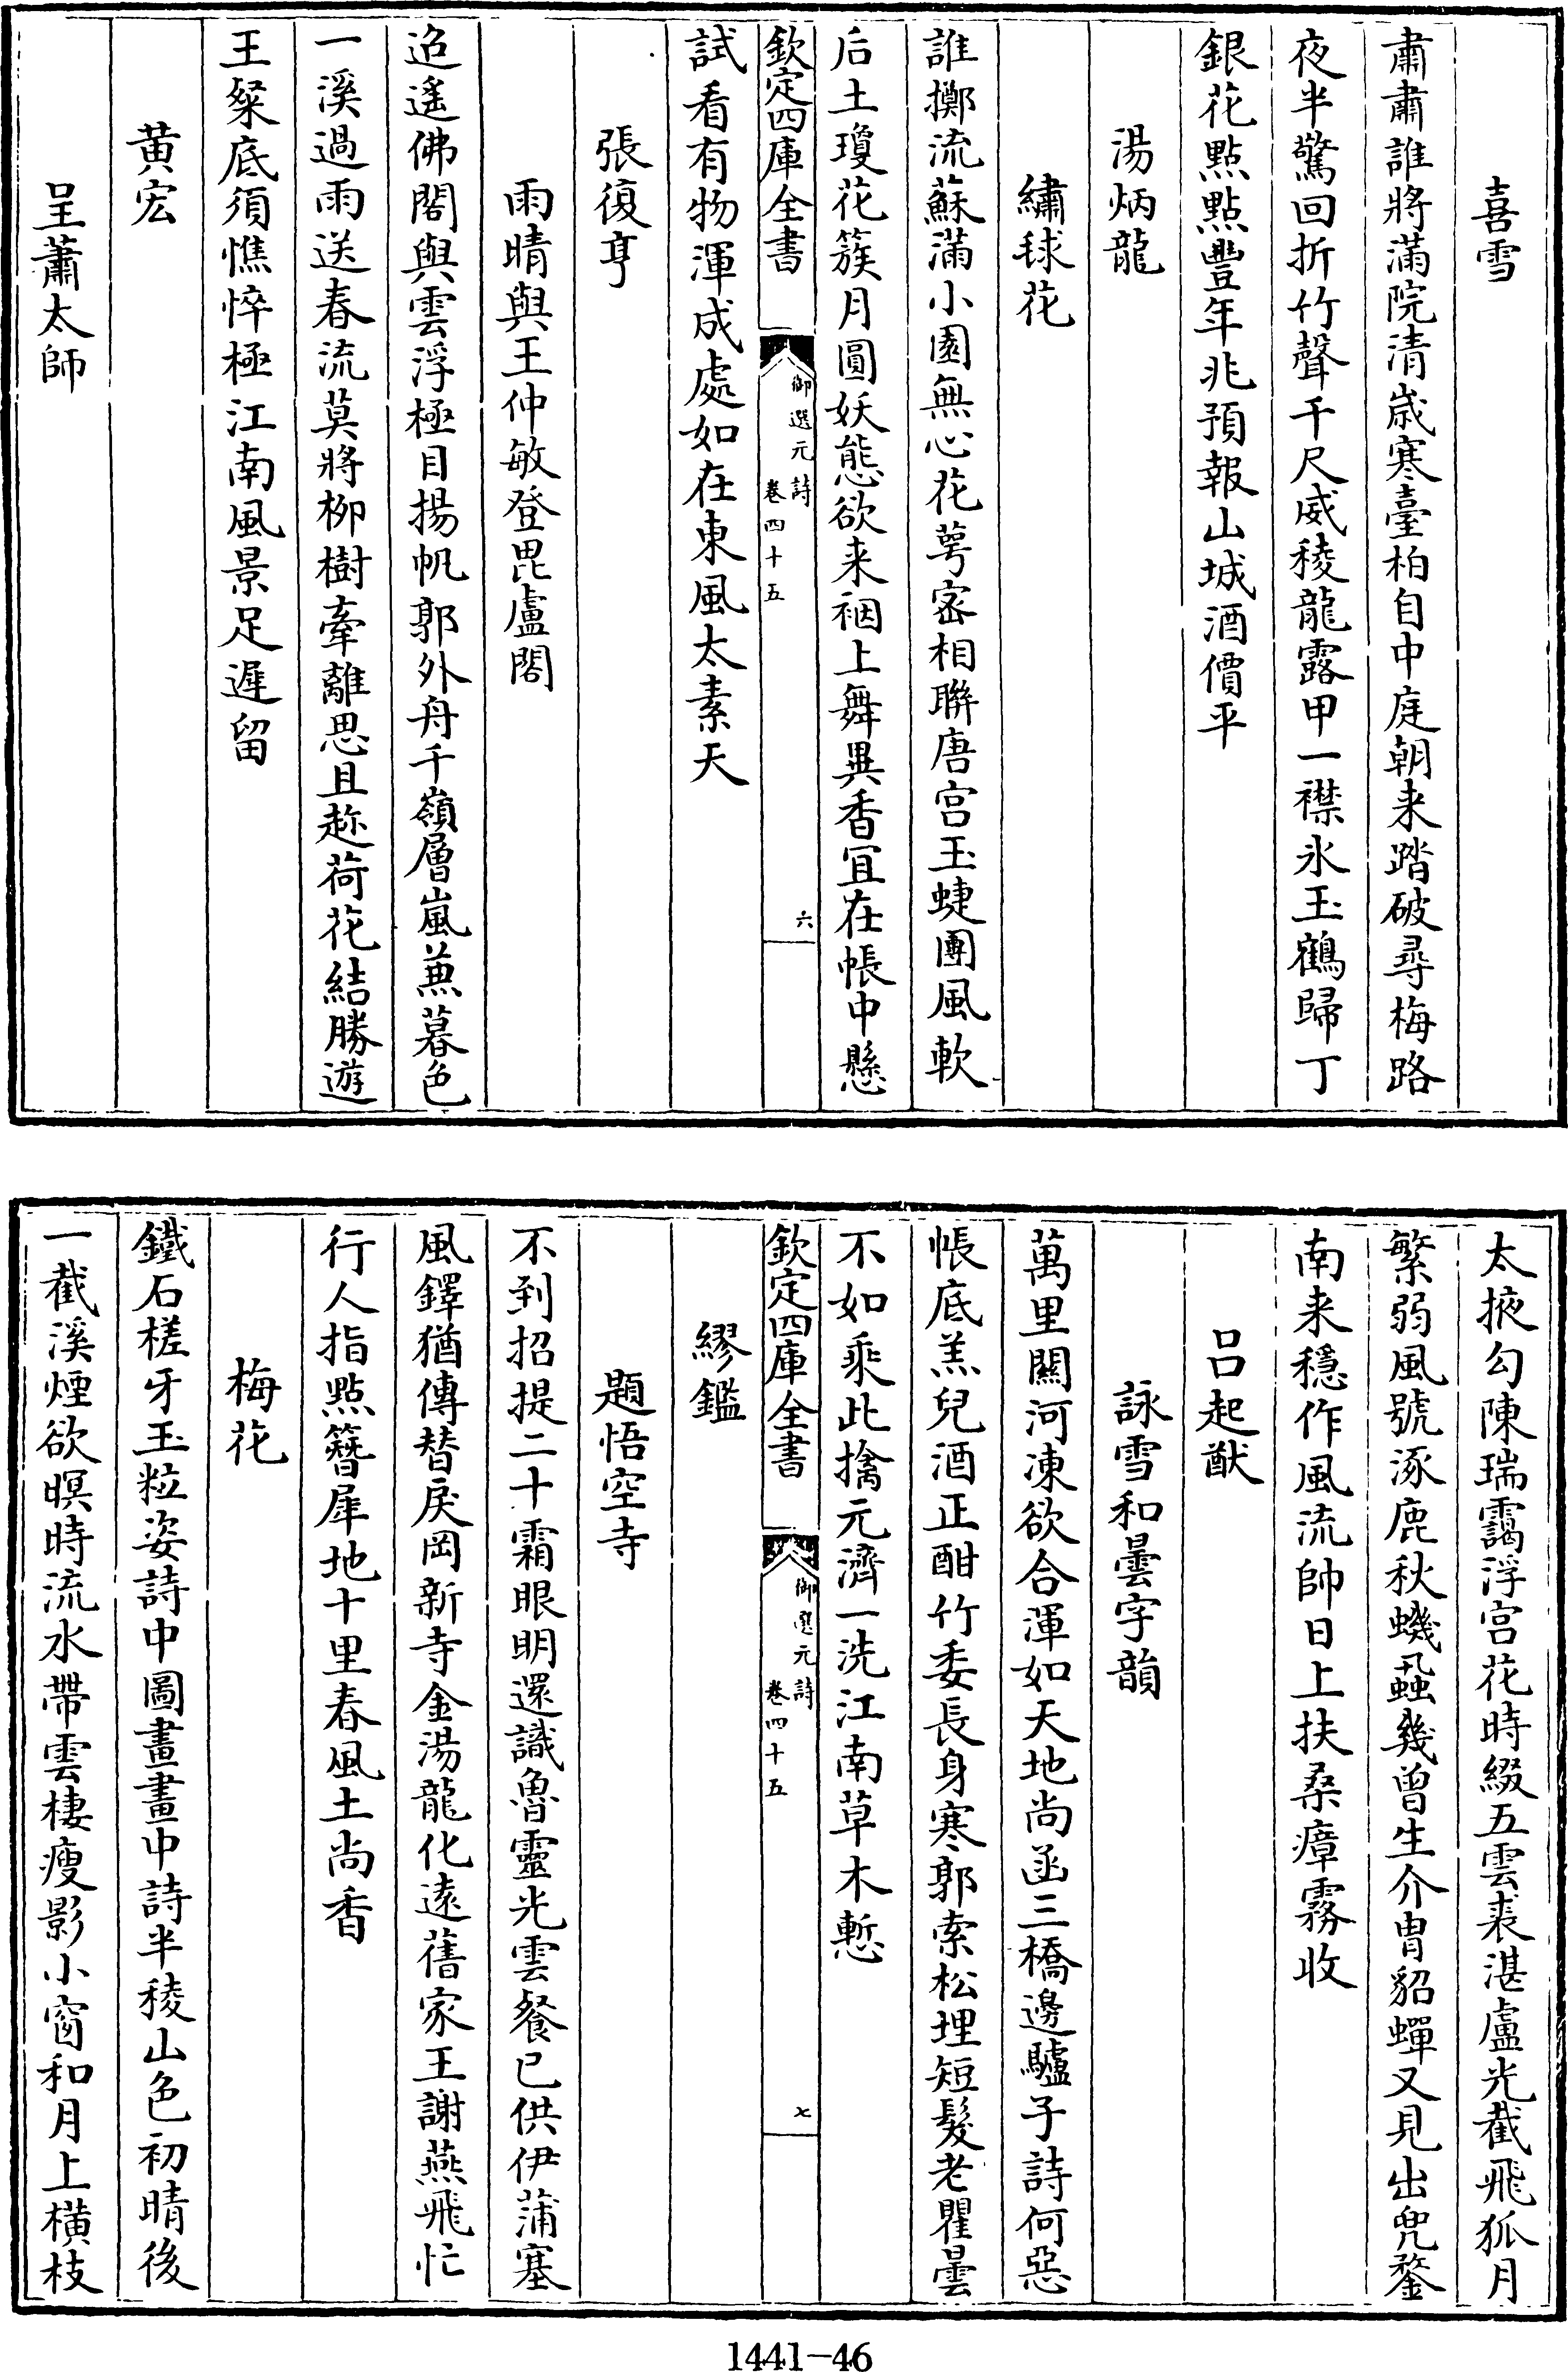 喜雪
肅肅誰將滿院清歲寒臺柏自中庭朝来踏破尋梅路
夜半驚回折竹聲千尺威稜龍露甲一襟氷玉鶴歸丁
銀花點點豐年兆預報山城酒價平
湯炳龍
繡毬花
誰擲流蘇滿小園無心花萼密相聯唐宫玉蜨團風軟
后土瓊花簇月圓妖態欲来裀上舞異香宜在帳中懸
欽定四庫全書
御選元詩
卷四十五
六
試看有物渾成處如在東風太素天
張復亨
雨晴與王仲敏登毘盧閣
迢遙佛閣與雲浮極目揚帆郭外舟千嶺層嵐蒸暮色
一溪過雨送春流莫將柳樹牽離思且趂荷花結勝遊
王粲底須憔悴極江南風景足遲留
黄宏
呈蕭太師
太掖勾陳瑞靄浮宫花時綴五雲裘湛盧光截飛狐月
繁弱風號涿鹿秋蟣蝨幾曽生介胄貂蟬又見出兜鍪
南来穩作風流帥日上扶桑瘴霧收
吕起猷
詠雪和曇字韻
萬里關河凍欲合渾如天地尚函三橋邊驢子詩何惡
帳底羔兒酒正酣竹委長身寒郭索松埋短髮老瞿曇
不如乘此擒元濟一洗江南草木慙
欽定四庫全書
御選元詩
卷四十五
七
繆鑑
題悟空寺
不到招提二十霜眼明還識魯靈光雲餐已供伊蒲塞
風鐸猶傳替戾岡新寺金湯龍化逺舊家王謝燕飛忙
行人指點簪犀地十里春風土尚香
梅花
鐵石槎牙玉粒姿詩中圖畫畫中詩半稜山色初晴後
一截溪煙欲暝時流水帶雲棲瘦影小窗和月上横枝
1441-46